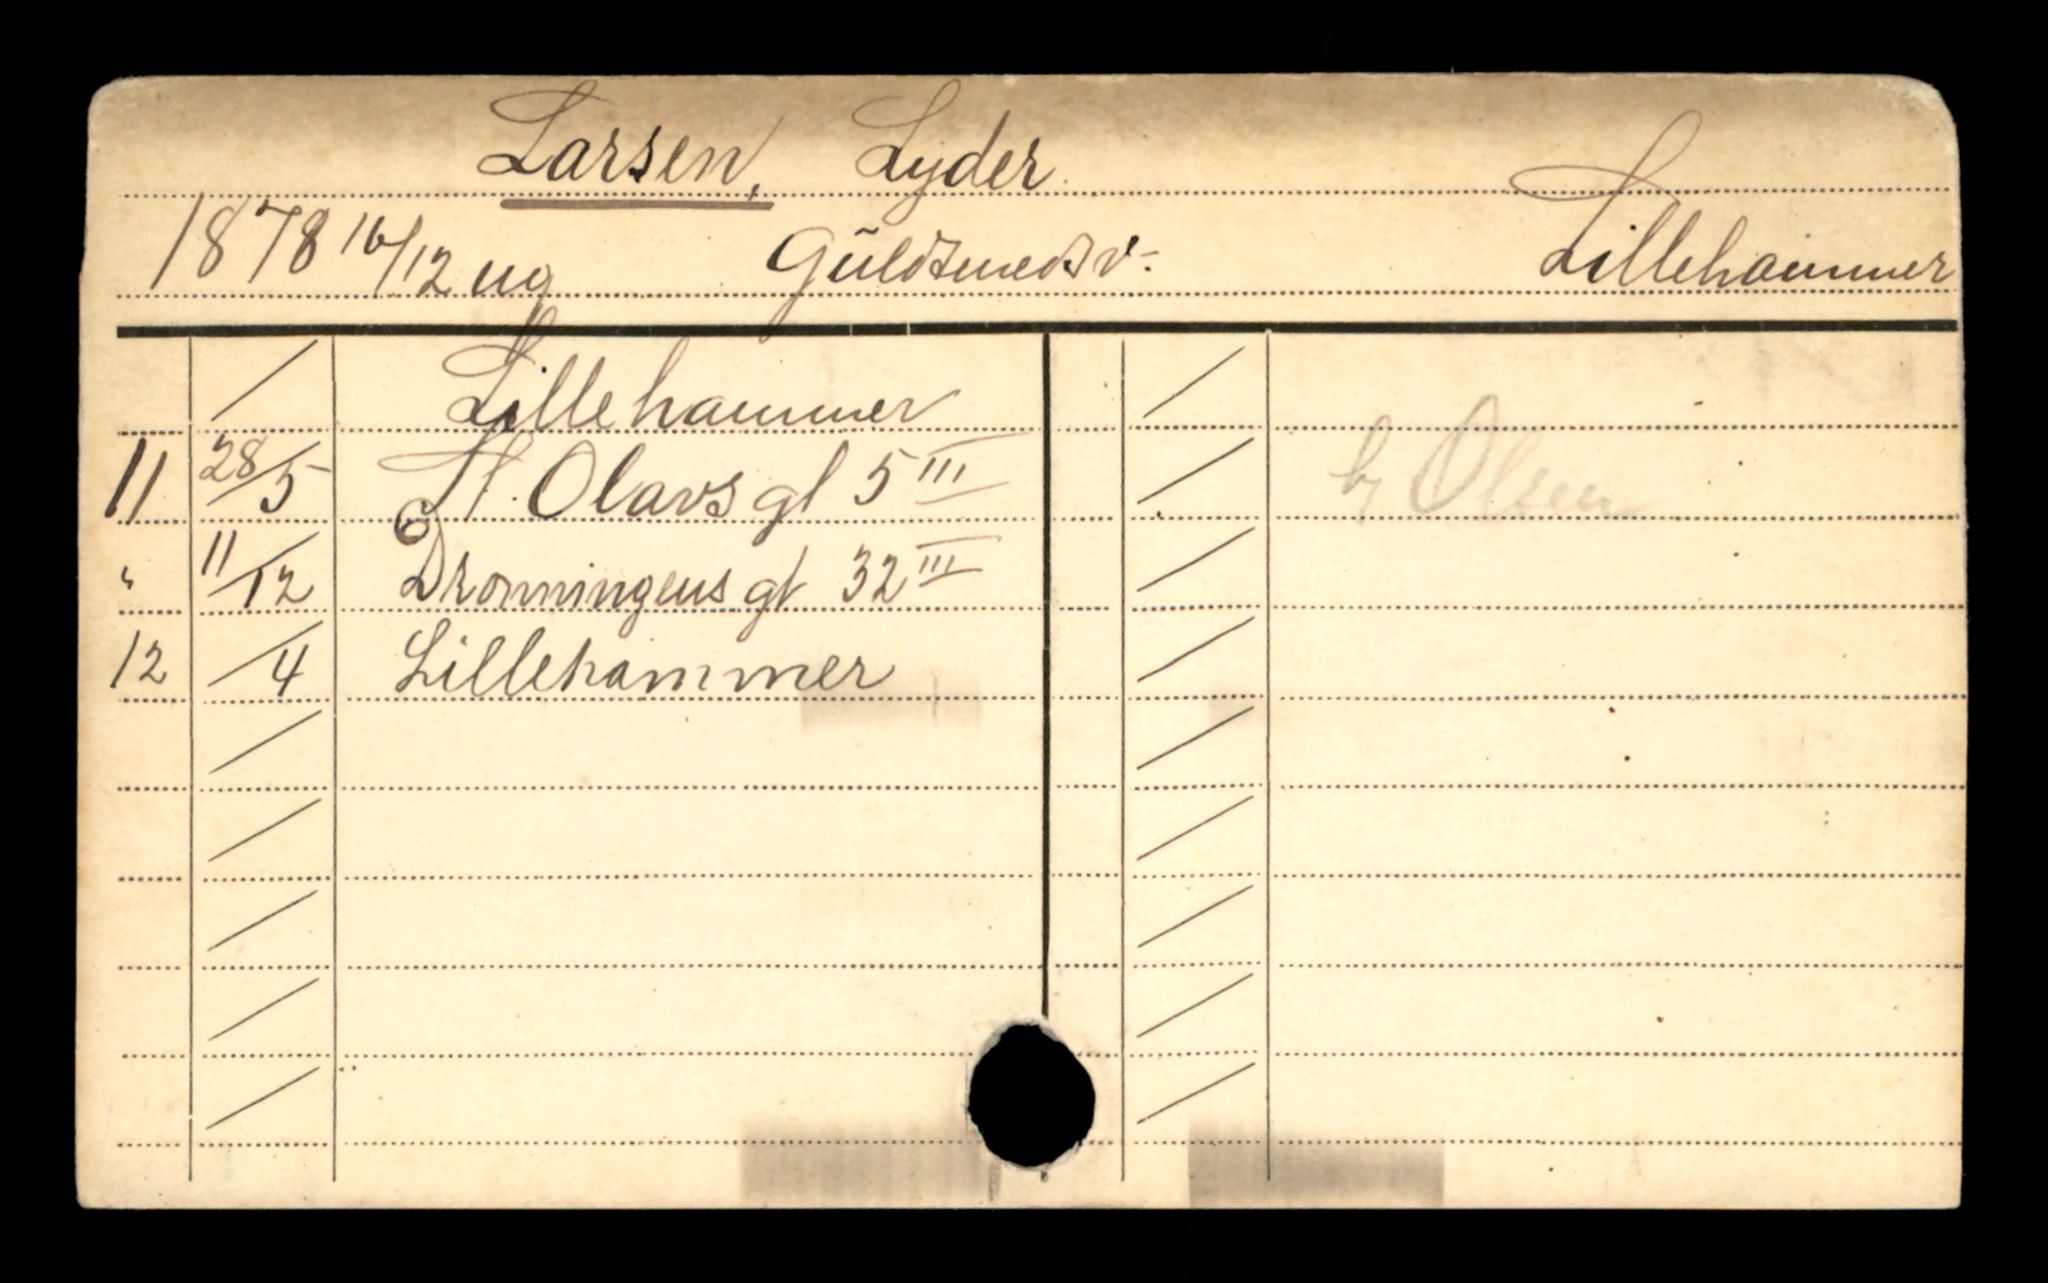 Larsen, Lyder
1878 16/12 ug Guldsmedsv. Lillehammer
/ Lillehammer
11 28/5 St. Olavs gt 5 III
" 11/12 Dronningens gt 32 III
12 /4 Lillehammer
Olsen